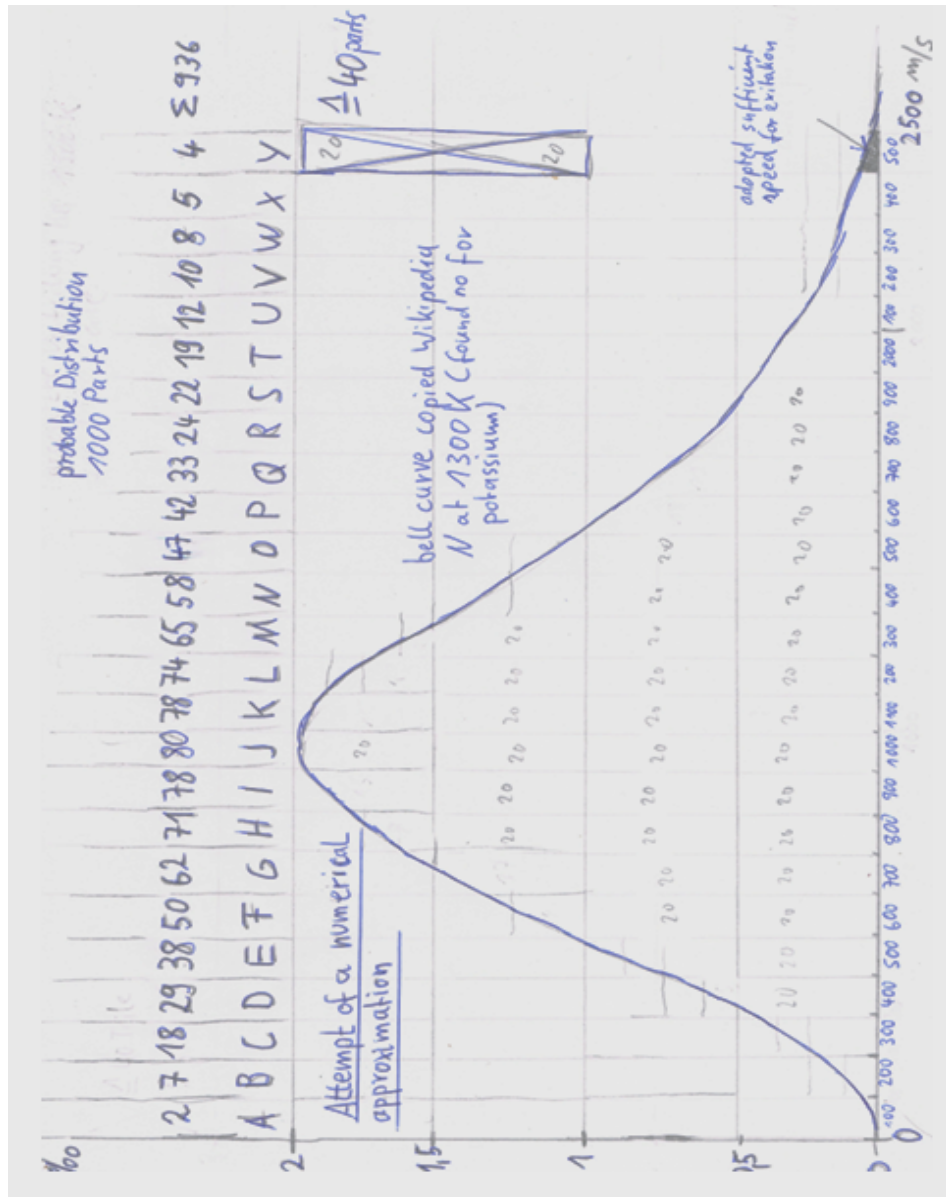 probable Distribution
1000 Parts
2 7 18 29 38 50 62 71 78 80 78 74 65 58 47 42 33 24 22 19 12 10 8 5 4 Σ 936
A B C D E F G H I J K L M N O P Q R S T U V W X Y
20
20
≙ 40 parts
Attempt of a numerical
approximation
bell curve copied Wikipedia
N at 1300K (found no for
potassium)
adopted sufficient
speed for exitation
‰
2
1,5
1
0,5
0
20
20 20 20 20 20 20
20 20 20 20 20 20 20 20
20 20 20 20 20 20 20 20 20 20 20 20 20 20 20
0 100 200 300 400 500 600 700 800 900 1000 1100 200 300 400 500 600 700 800 900 2000 100 200 300 400 500
2500 m/s